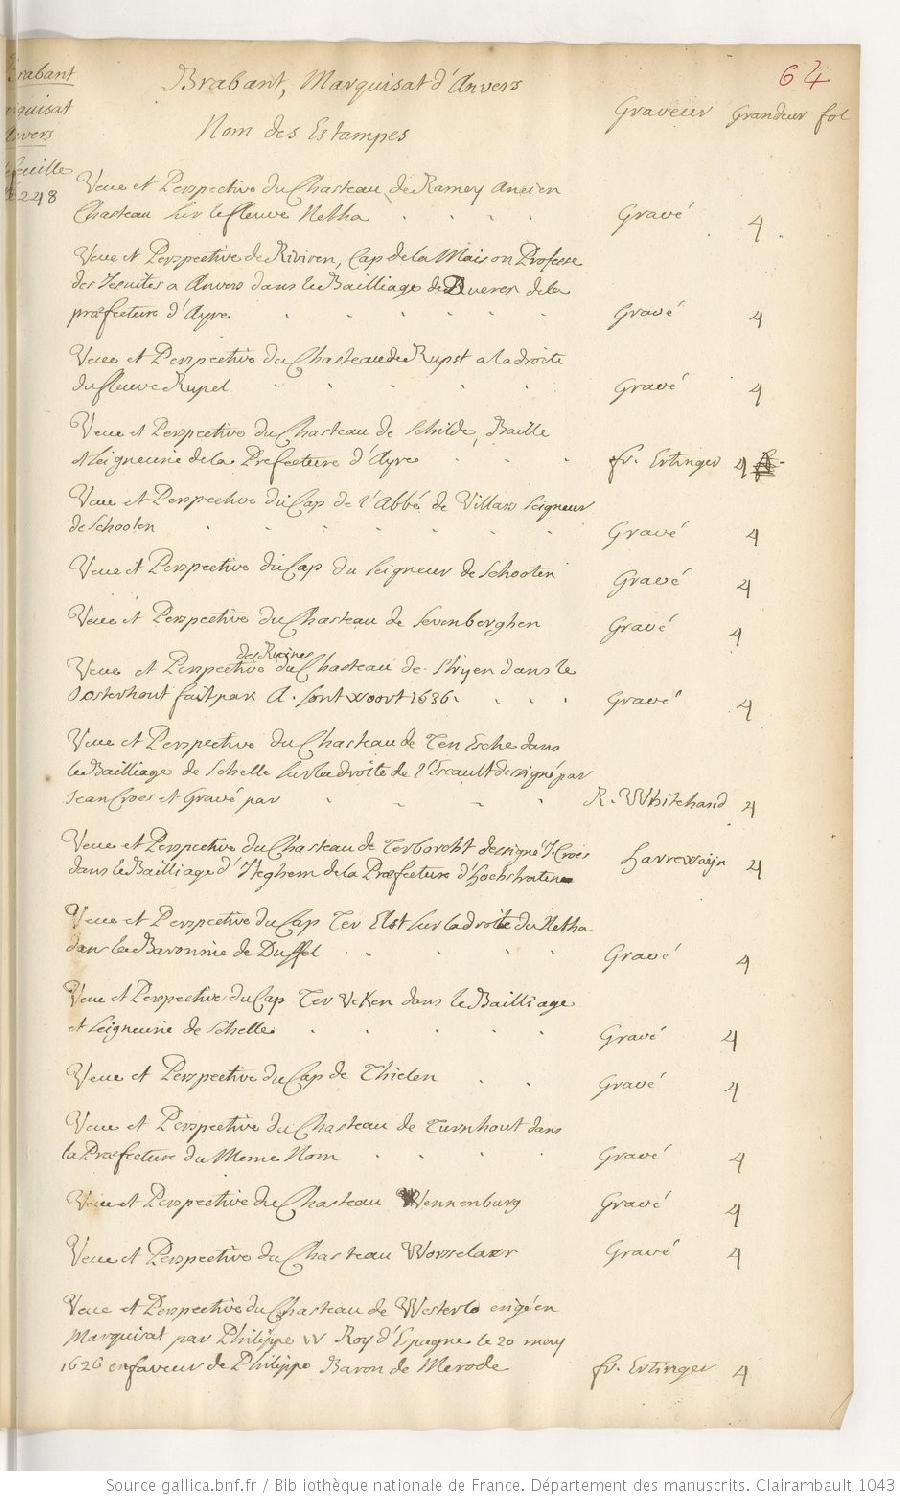 64
Brabant
Marquisat d'Anvers
feuille
248
Brabant, Marquisat d'Anvers
Nom des Estampes
Graveur Grandeur fol
Veue et Perspective du Chasteau de Ramey Ancien
Chasteau sur le fleuve Netha . . . . Gravé 4
Veue et Perspective de Riviren, Cap de la Maison Professe
des Jesuites a Anvers dans le Bailliage de Dueren de la
præfecture d'Ayre . . . . . . Gravé 4
Veue et Perspective du Chasteau du Rupst a la droite
du fleuve Rupel . . . . Gravé 4
Veue et Perspective du Chasteau de Schilde, Baille
et Seigneurie de la Prefecture d'Ayre . . . fr. Ertinger 4
Veue et Perspective du Cap de l'Abbé de Villars Seigneur
de Schooten . . . . . . Gravé 4
Veue et Perspective du Cap du Seigneur de Schooten Gravé 4
Veue et Perspective du Chasteau de Sevenberghen Gravé 4
des Ruines
Veue et Perspective du Chasteau de Stryen dans le
Oosterhout fait par A. Sontwoort 1636 . . . Gravé 4
Veue et Perspective du Chasteau de Ten Esche dans
le Bailliage de Schelle sur la droite de l'Escault designé par
Jean Croes et Gravé par . . . . R. Whitehand 4
Veue et Perspective du Chasteau de Terborcht designé J Croes
dans le Bailliage d'Iteghem de la Præfecture d'Hochstraten Harrewijn 4
Veue et Perspective du Cap Ter Elst sur la droite du Netha
dans la Baronnie de Duffel . . . . Gravé 4
Veue et Perspective du Cap Ter Veken dans le Bailliage
et Seigneurie de Schelle . . . . . Gravé 4
Veue et Perspective du Cap de Thielen . . Gravé 4
Veue et Perspective du Chasteau de Turnhout dans
la Præfecture du Meme Nom . . . . Gravé 4
Veue et Perspective du Chasteau Wennenburg Gravé 4
Veue et Perspective du Chasteau Worselaer Gravé 4
Veue et Perspective du Chasteau de Westerlo erigé en
Marquisat par Philippe IV Roy d'Espagne le 20 may
1626 en faveur de Philippe Baron de Merode fr. Ertinger 4
Source gallica.bnf.fr / Bibliothèque nationale de France. Département des manuscrits. Clairambault 1043